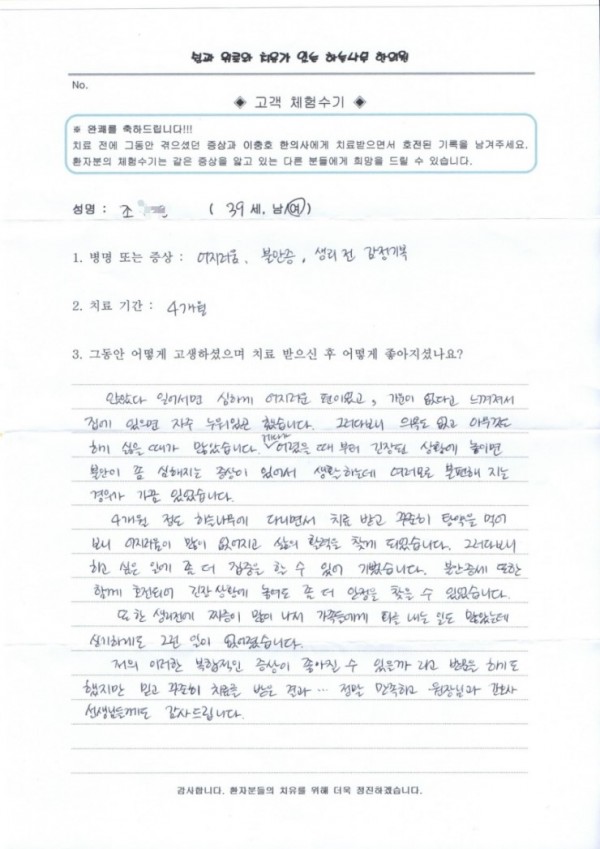 쉼과 위로와 치유가 있는 하늘나무 한의원
No.
◈ 고객 체험수기 ◈
※ 완쾌를 축하드립니다!!!
치료 전에 그동안 겪으셨던 증상과 이충호 한의사에게 치료받으면서 호전된 기록을 남겨주세요.
환자분의 체험수기는 같은 증상을 앓고 있는 다른 분들에게 희망을 드릴 수 있습니다.
성명 : 조 ( 39 세, 남/여 )
1. 병명 또는 증상 : 어지러움, 불안증, 생리 전 감정기복
2. 치료 기간 : 4개월
3. 그동안 어떻게 고생하셨으며 치료 받으신 후 어떻게 좋아지셨나요?
앉았다 일어서면 심하게 어지러운 편이었고, 기운이 없다고 느껴져서
집에 있으면 자주 누워있곤 했습니다. 그러다보니 의욕도 없고 아무것도
하기 싫을 때가 많았습니다. 게다가 어렸을 때 부터 긴장된 상황에 놓이면
불안이 좀 심해지는 증상이 있어서 생활하는데 여러모로 불편해 지는
경우가 가끔 있었습니다.
4개월 정도 하늘나무에 다니면서 치료 받고 꾸준히 탕약을 먹어
보니 어지러움이 많이 없어지고 삶의 활력을 찾게 되었습니다. 그러다보니
하고 싶은 일에 좀 더 집중을 할 수 있어 기뻤습니다. 불안증세 또한
함께 호전되어 긴장상황에 놓여도 좀 더 안정을 찾을 수 있었습니다.
또한 생리전에 짜증이 많이 나서 가족들에게 화를 내는 일도 많았는데
신기하게도 그런 일이 없어졌습니다.
저의 이러한 복합적인 증상이 좋아질 수 있을까 라고 반문을 하기도
했지만 믿고 꾸준히 치료를 받은 결과 … 정말 만족하고 원장님과 간호사
선생님들께도 감사드립니다.
감사합니다. 환자분들의 치유를 위해 더욱 정진하겠습니다.